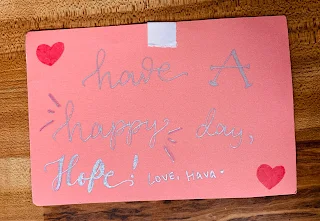 have A
happy day,
Hope! Love, Hava-